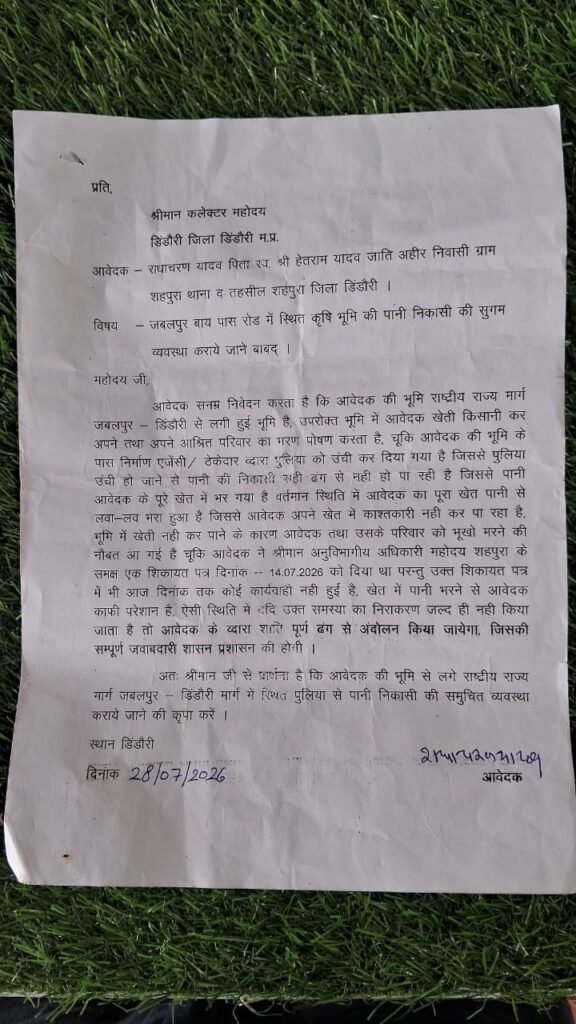 प्रति,
श्रीमान कलेक्टर महोदय
डिंडौरी जिला डिंडौरी म.प्र.
आवेदक – राधाचरण यादव पिता स्व. श्री हेतराम यादव जाति अहीर निवासी ग्राम
शहपुरा थाना व तहसील शहपुरा जिला डिंडौरी ।
विषय – जबलपुर बाय पास रोड में स्थित कृषि भूमि की पानी निकासी की सुगम
व्यवस्था कराये जाने बाबद् ।
महोदय जी,
आवेदक सनम्र निवेदन करता है कि आवेदक की भूमि राष्टीय राज्य मार्ग
जबलपुर – डिंडौरी से लगी हुई भूमि है, उपरोक्त भूमि में आवेदक खेती किसानी कर
अपने तथा अपने आश्रित परिवार का भरण पोषण करता है, चूकि आवेदक की भूमि के
पास निर्माण एजेंसी/ ठेकेदार व्दारा पुलिया को उंची कर दिया गया है जिससे पुलिया
उंची हो जाने से पानी की निकासी सही ढंग से नही हो पा रही है जिससे पानी
आवेदक के पूरे खेत में भर गया है वर्तमान स्थिति में आवेदक का पूरा खेत पानी से
लवा–लव भरा हुआ है जिससे आवेदक अपने खेत में काश्तकारी नही कर पा रहा है,
भूमि में खेती नही कर पाने के कारण आवेदक तथा उसके परिवार को भूखो मरने की
नौबत आ गई है चूकि आवेदक ने श्रीमान अनुविभागीय अधिकारी महोदय शहपुरा के
समक्ष एक शिकायत पत्र दिनांक -- 14.07.2026 को दिया था परन्तु उक्त शिकायत पत्र
में भी आज दिनांक तक कोई कार्यवाही नही हुई है, खेत में पानी भरने से आवेदक
काफी परेशान है, ऐसी स्थिति में यदि उक्त समस्या का निराकरण जल्द ही नही किया
जाता है तो आवेदक के व्दारा शांति पूर्ण ढंग से अंदोलन किया जायेगा, जिसकी
सम्पूर्ण जवाबदारी शासन प्रशासन की होगी ।
अतः श्रीमान जी से प्रार्थना है कि आवेदक की भूमि से लगे राष्टीय राज्य
मार्ग जबलपुर – डिंडौरी मार्ग में स्थित पुलिया से पानी निकासी की समुचित व्यवस्था
कराये जाने की कृपा करें ।
स्थान डिंडौरी
राधाचरण यादव
दिनांक 28/07/2026
आवेदक